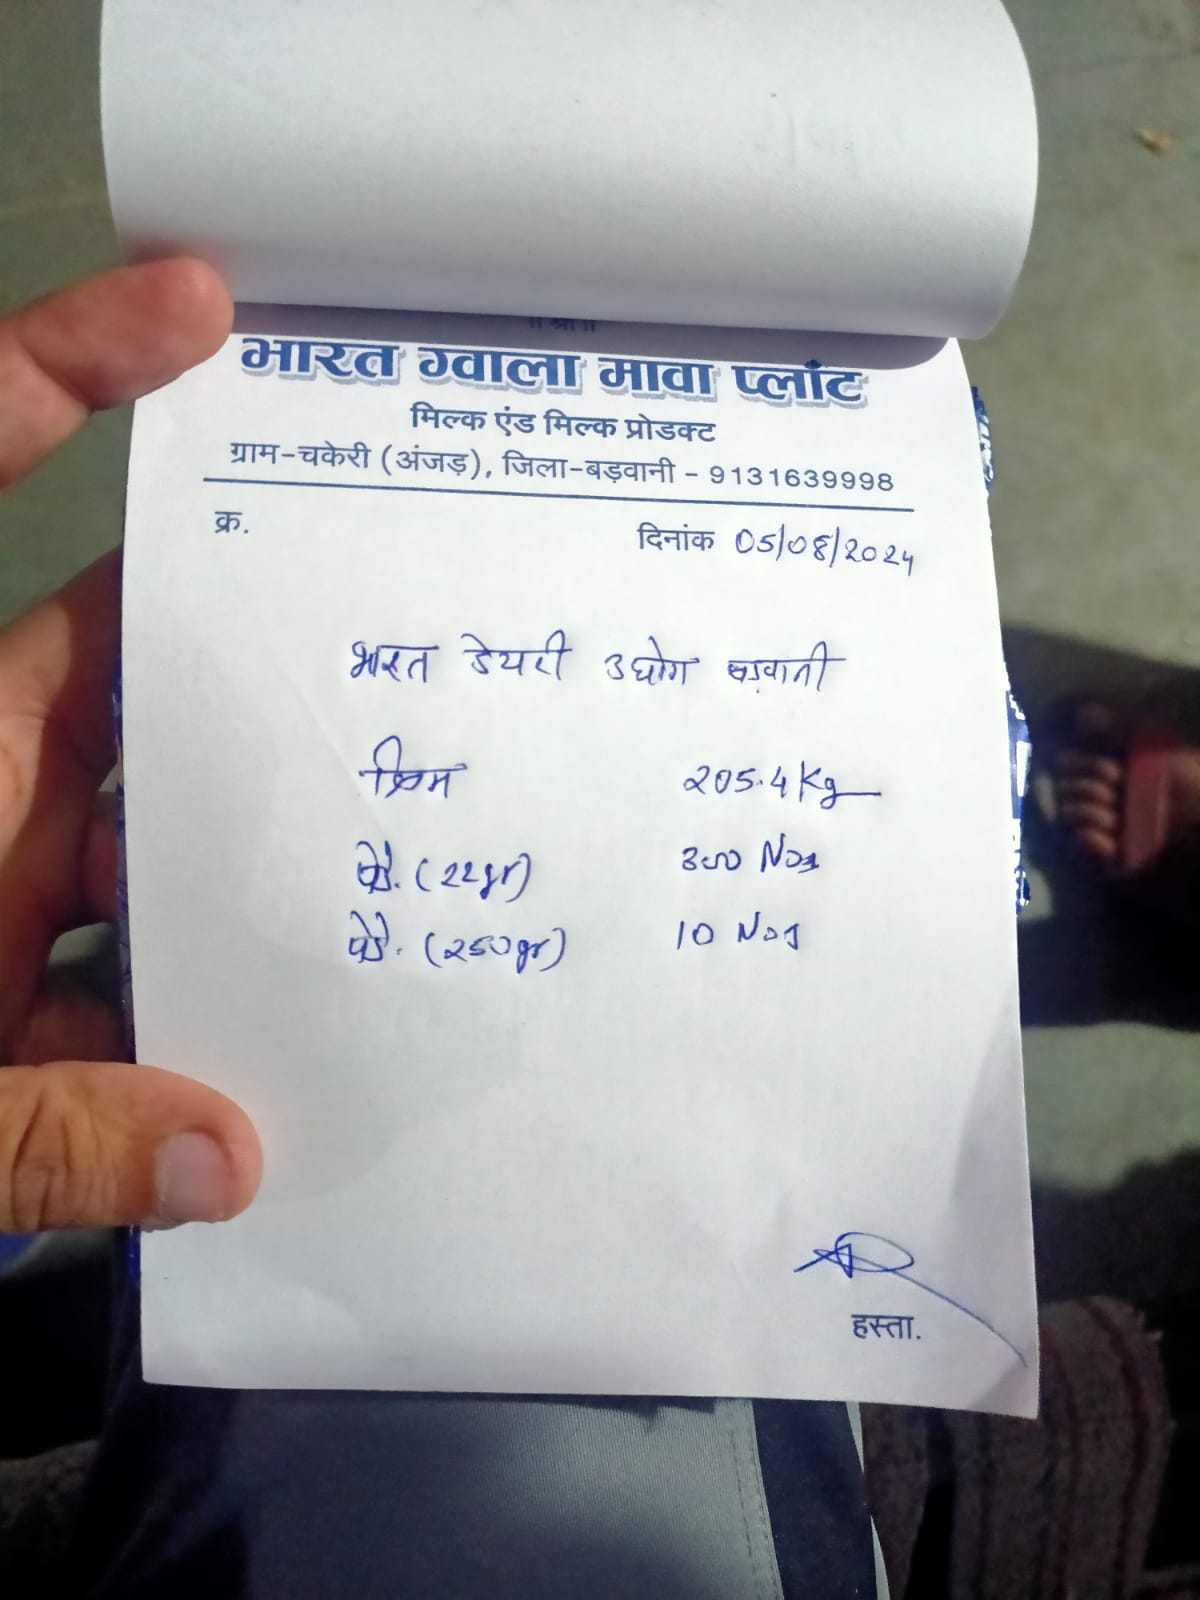 ॥ श्री ॥
भारत ग्वाला मावा प्लाँट
मिल्क एंड मिल्क प्रोडक्ट
ग्राम-चकेरी (अंजड़), जिला-बड़वानी - 9131639998
क्र. दिनांक 05/08/2024
भारत डेयरी उघोग बड़वानी
क्रिम 205.4 Kg
पेडे. (22gr) 300 Nos
पेडे. (250gr) 10 Nos
हस्ता.